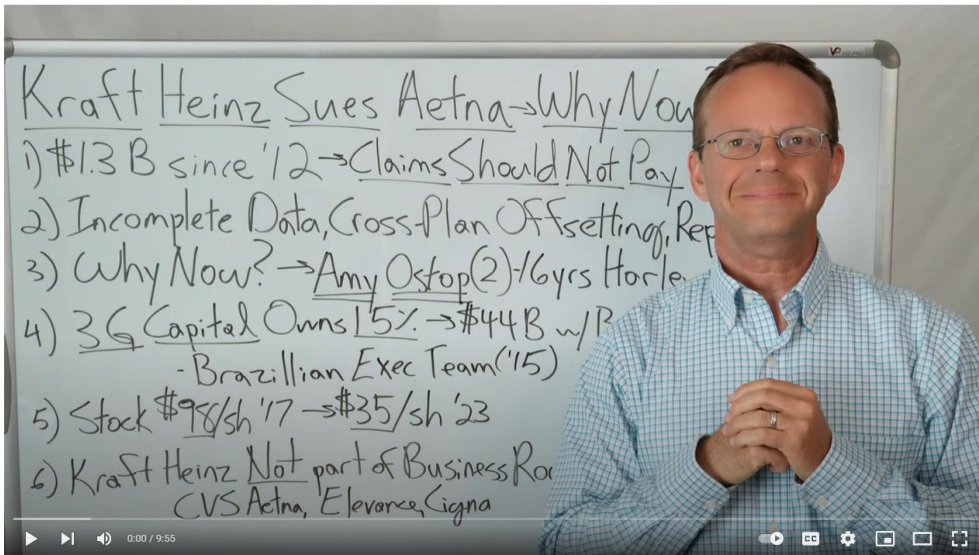 Kraft Heinz Sues Aetna→Why Now
1) $1.3 B since '12→Claims Should Not Pay
2) Incomplete Data, Cross-Plan Offsetting,
3) Why Now?→Amy Ostop(2)-16yrs
4) 3G Capital Owns 15%→$44B w/
-Brazillian Exec Team('15)
5) Stock $98/sh '17→$35/sh '23
6) Kraft Heinz Not part of Business
CVS Aetna, Elevance, Cigna
0:00 / 9:55
CC